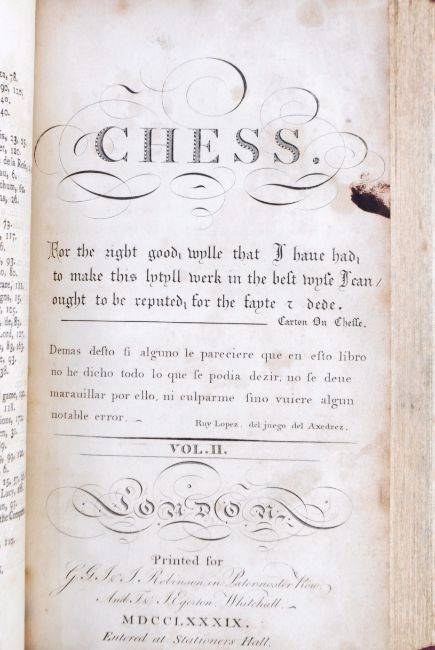 CHESS.
For the right good, wylle that I haue had,
to make this lytyll werk in the best wyse I can /
ought to be reputed, for the fayte ⁊ dede.
Carton On Chesse.
Demas desto si alguno le pareciere que en esto libro
no he dicho todo lo que se podia dezir, no se deue
marauillar por ello, ni culparme sino vuiere algun
notable error.
Ruy Lopez, del juego del Axedrez.
VOL.II.
LONDON,
Printed for
G.G.J. & J. Robinson, in Paternoster Row
And T. & J. Egerton Whitehall.
MDCCLXXXIX.
Entered at Stationers Hall.